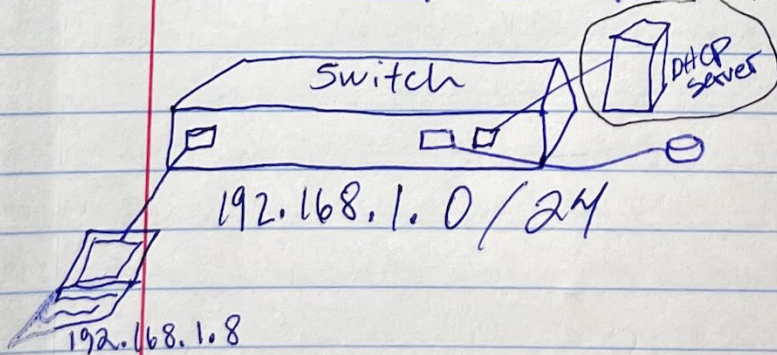 Switch
DHCP
server
192.168.1.0/24
192.168.1.8